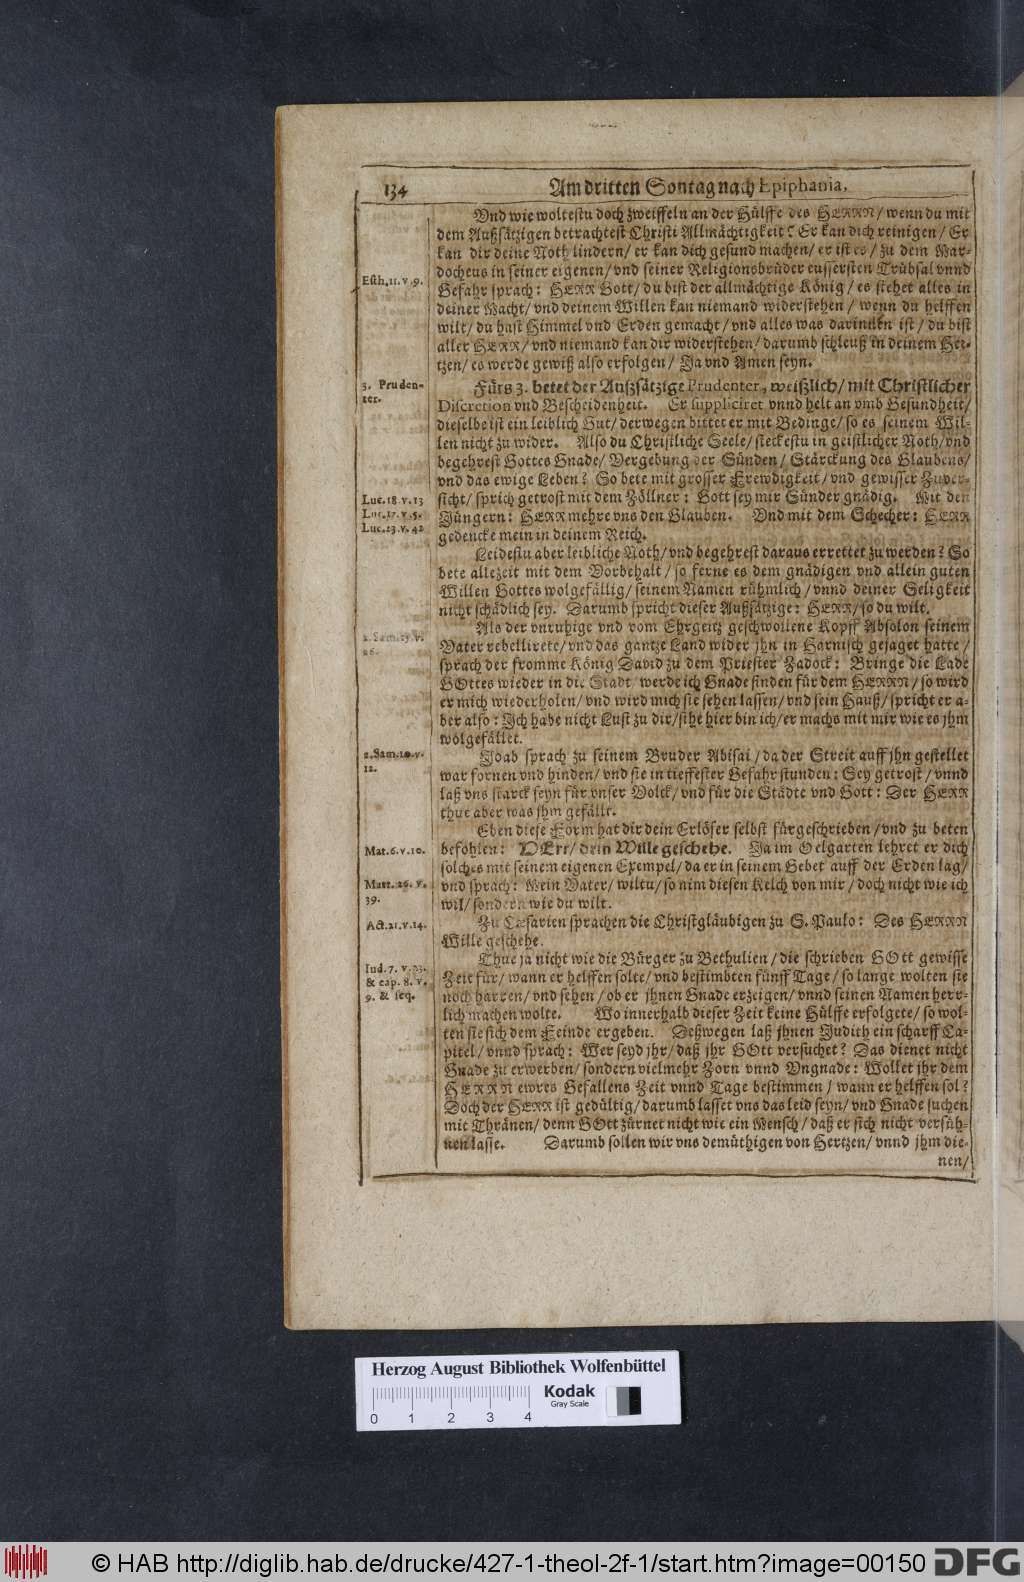 134
Am dritten Sontag nach Epiphania,
Vnd wie woltestu doch zweiffeln an der Hülffe des HERRN/ wenn du mit
dem Außsätzigen betrachtest Christi Allmächtigkeit? Er kan dich reinigen/ Er
kan dir deine Noth lindern/ er kan dich gesund machen/ er ist es/ zu dem Mar-
docheus in seiner eigenen/ vnd seiner Religionsbrüder eussersten Trübsal vnnd
Esth. 11. v. 9.
Gefahr sprach: HERR Gott/ du bist der allmächtige König/ es stehet alles in
deiner Macht/ vnd deinem Willen kan niemand widerstehen/ wenn du helffen
wilt/ du hast Himmel vnd Erden gemacht/ vnd alles was darinnen ist/ du bist
aller HERR/ vnd niemand kan dir widerstehen/ darumb schleuß in deinem Her-
tzen/ es werde gewiß also erfolgen/ Ja vnd Amen seyn.
3. Pruden-
ter.
Fürs 3. betet der Außsätzige Prudenter, weißlich/ mit Christlicher
Discretion vnd Bescheidenheit. Er suppliciret vnnd helt an vmb Gesundheit/
dieselbe ist ein leiblich Gut/ derwegen bittet er mit Bedinge/ so es seinem Wil-
len nicht zu wider. Also du Christliche Seele/ steckestu in geistlicher Noth/ vnd
begehrest Gottes Gnade/ Vergebung der Sünden/ Stärckung des Glaubens/
vnd das ewige Leben? So bete mit grosser Frewdigkeit/ vnd gewisser Zuver-
Luc. 18. v. 13
sicht/ sprich getrost mit dem Zöllner: Gott sey mir Sünder gnädig. Mit den
Luc. 17. v. 5.
Jüngern: HERR mehre vns den Glauben. Vnd mit dem Schecher: HERR
Luc. 23. v. 42
gedencke mein in deinem Reich.
Leidestu aber leibliche Noth/ vnd begehrest daraus errettet zu werden? So
bete allezeit mit dem Vorbehalt/ so ferne es dem gnädigen vnd allein guten
Willen Gottes wolgefällig/ seinem Namen rühmlich/ vnnd deiner Seligkeit
nicht schädlich sey. Darumb spricht dieser Außsätzige: HERR/ so du wilt.
2. Sam. 15. v.
26.
Als der vnruhige vnd vom Ehrgeitz geschwollene Kopff Absolon seinem
Vater rebellirete/ vnd das gantze Land wider jhn in Harnisch gejaget hatte/
sprach der fromme König David zu dem Priester Zadock: Bringe die Lade
GOttes wieder in die Stadt/ werde ich Gnade finden für dem HERRN/ so wird
er mich wiederholen/ vnd wird mich sie sehen lassen/ vnd sein Hauß/ spricht er a-
ber also: Ich habe nicht Lust zu dir/ sihe hier bin ich/ er machs mit mir wie es jhm
wolgefället.
2. Sam. 10. v.
12.
Joab sprach zu seinem Bruder Abisai/ da der Streit auff jhn gestellet
war fornen vnd hinden/ vnd sie in tieffester Gefahr stunden: Sey getrost/ vnnd
laß vns starck seyn für vnser Volck/ vnd für die Städte vnd Gott: Der HERR
thue aber was jhm gefällt.
Eben diese Form hat dir dein Erlöser selbst fürgeschrieben/ vnd zu beten
Mat. 6. v. 10.
befohlen: HErr/ dein Wille geschehe. Ja im Oelgarten lehret er dich
solches mit seinem eigenen Exempel/ da er in seinem Gebet auff der Erden lag/
Matt. 26. v.
39.
vnd sprach: Mein Vater/ wiltu/ so nim diesen Kelch von mir/ doch nicht wie ich
wil/ sondern wie du wilt.
Act. 21. v. 14.
Zu Cæsarien sprachen die Christgläubigen zu S. Paulo: Des HERRN
Wille geschehe.
Iud. 7. v. 23.
& cap. 8. v.
9. & seq.
Thue ja nicht wie die Bürger zu Bethulien/ die schrieben GOtt gewisse
Zeit für/ wann er helffen solte/ vnd bestimbten fünff Tage/ so lange wolten sie
noch harren/ vnd sehen/ ob er jhnen Gnade erzeigen/ vnnd seinen Namen herr-
lich machen wolte. Wo innerhalb dieser Zeit keine Hülffe erfolgete/ so wol-
ten sie sich dem Feinde ergeben. Deßwegen laß jhnen Judith ein scharff Ca-
pitel/ vnnd sprach: Wer seyd jhr/ daß jhr GOtt versuchet? Das dienet nicht
Gnade zu erwerben/ sondern vielmehr Zorn vnnd Vngnade: Wollet jhr dem
HERRN ewres Gefallens Zeit vnnd Tage bestimmen/ wann er helffen sol?
Doch der HERR ist gedültig/ darumb lasset vns das leid seyn/ vnd Gnade suchen
mit Thränen/ denn GOtt zürnet nicht wie ein Mensch/ daß er sich nicht versüh-
nen lasse. Darumb sollen wir vns demüthigen von Hertzen/ vnnd jhm die-
nen/
Herzog August Bibliothek Wolfenbüttel
Kodak
Gray Scale
0 1 2 3 4
© HAB http://diglib.hab.de/drucke/427-1-theol-2f-1/start.htm?image=00150
DFG